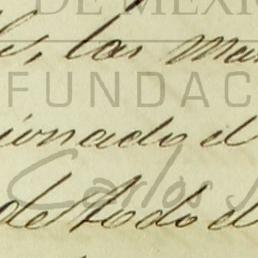 DE MÉXIC
las ma
FUNDAC
ionado el
Carlos
de todo el